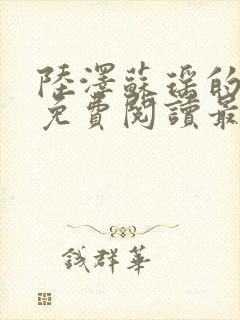 陸澤蘇瑶的
免費閱讀最
錢群華